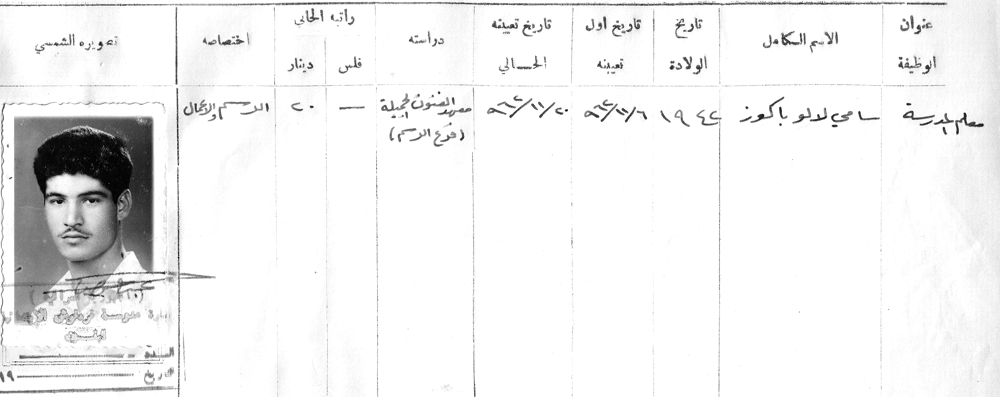 عنوان الوظيفة
الاسم الكامل
تاريخ الولادة
تاريخ اول تعيينه
تاريخ تعيينه الحالي
دراسته
راتبه الحالي
فلس
دينار
اختصاصه
تصويره الشمسي
معلم المدرسة
سامي لالو باكوز
١٩٤٢
معهد الفنون الجميلة
(فرع الرسم)
—
٢٠
الرسم والاعمال
التاريخ ١٩